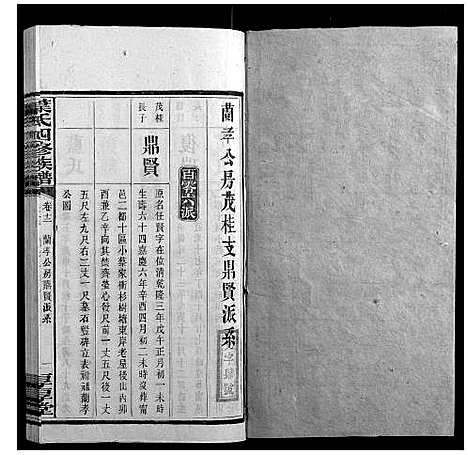 蘭孝公房茂桂支鼎賢派系
字肆號
百崇公派
茂桂
長子
鼎賢
原名任賢字在位清乾隆三年戊午正月初一未時
生壽六十四嘉慶六年辛酉四月初二未時沒葬甯
邑二都十區小蔡家衝杉樹塘東岸老屋後山丙卯
酉兼乙辛向其葬墓心發尺前一丈五尺後一丈
五尺左九尺右二丈一尺墓石豎碑立表載蘭孝
公圖
葉氏四修族譜
卷十二
蘭孝公房鼎賢派系
一